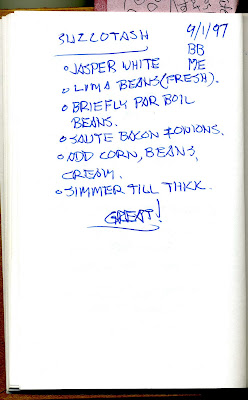 SUZZOTASH 9/1/97
• JASPER WHITE BB
• LIMA BEANS (FRESH). ME
• BRIEFLY PAR BOIL
BEANS.
• SAUTE BACON & ONIONS.
• ADD CORN, BEANS,
CREAM.
• SIMMER TILL THICK.
GREAT!